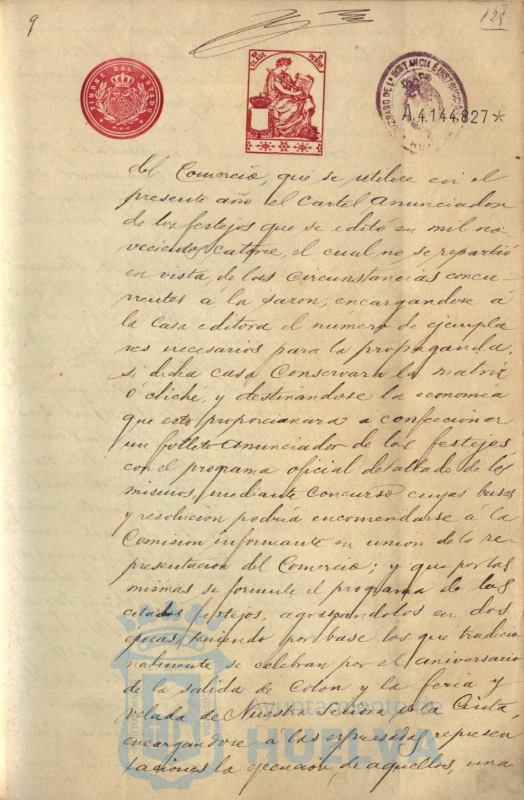 9
123
TIMBRE DEL ESTADO
CLASE
A.4.144.827*
del Comercio, que se utilice en el
presente año el cartel anunciador
de los festejos que se editó en mil no-
vecientos catorce, el cual no se repartió
en vista de las circunstancias concu-
rrentes a la sazon, encargandose á
la Casa editora el numero de ejempla
res necesarios para la propaganda,
si dicha casa conservara la matriz
ó cliché, y destinandose la economía
que esto proporcionara a confeccionar
un folleto anunciador de los festejos
con el programa oficial detallado de los
mismos, mediante Concurso cuyas bases
y resolucion podria encomendarse á la
Comision informante en union de la re-
presentacion del Comercio; y que por las
mismas se formule el programa de los
citados festejos, agrupandolos en dos
epocas, teniendo por base los que tradicio
nalmente se celebran por el aniversario
de la salida de Colon y la feria y
velada de Nuestra Señora de la Cinta,
encargandose a las expresadas represen
taciones la ejecucion de aquellos, una
Ayuntamiento de
HUELVA